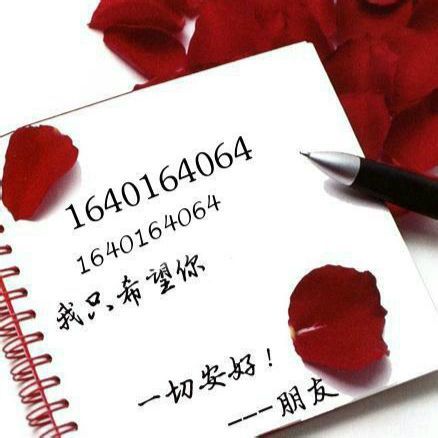 1640164064
1640164064
我只希望你
一切安好！
---朋友